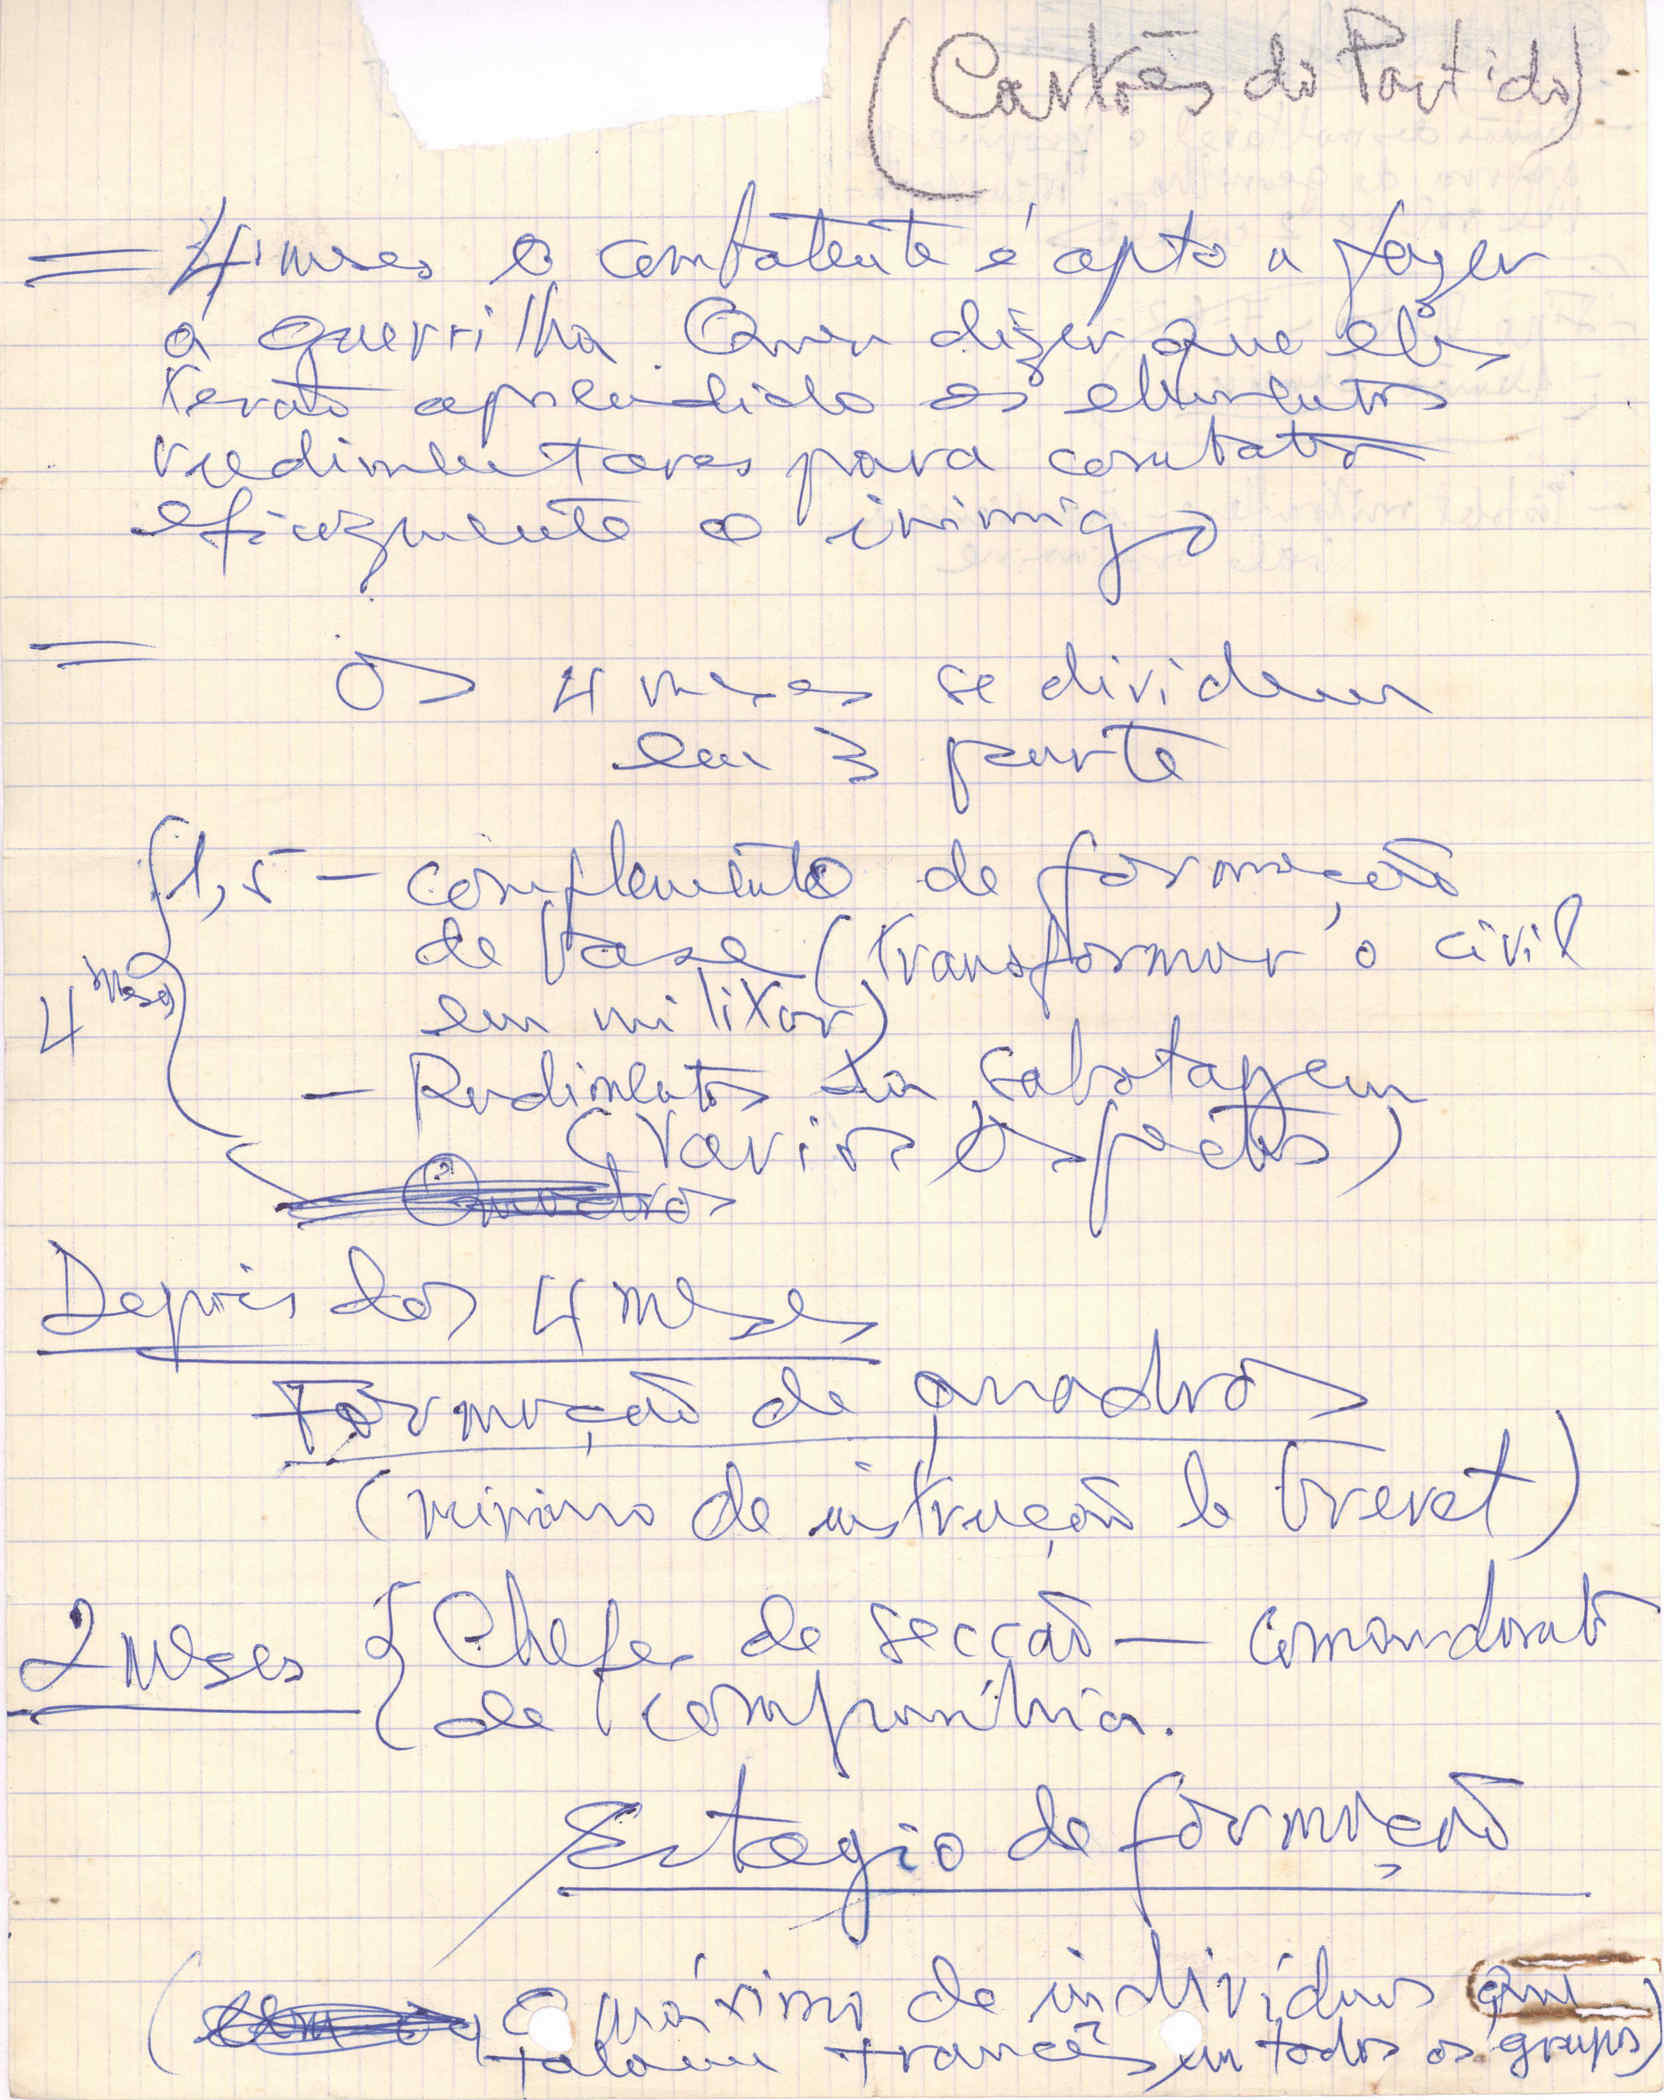 (Cartões do Partido)
= 4 meses o combatente é apto a fazer
a guerrilha. Quer dizer que eles
terão aprendido os elementos
rudimentares para combater
eficazmente o inimigo
= Os 4 meses se dividem
em 3 parte
1,5 - complemento de formação
de base (transformar o civil
4 meses
em militar)
- Rudimentos da sabotagem
(varios aspectos)
Quadros
Depois dos 4 meses
Formação de quadros
(minimo de instrução le brevet)
2 meses { Chefes de secção - comandante
de companhia.
Estagio de formação
( o máximo de individuos que
falam francês em todos os grupos)